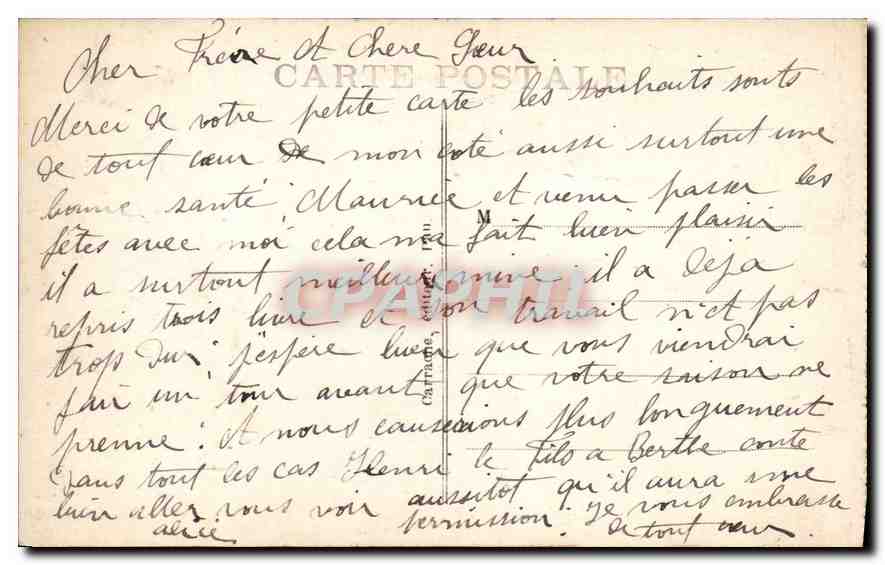 Cher Frére et Chere Sœur
CARTE POSTALE
Merci de votre petite carte les souhaits sonts
de tout cœur de mon coté aussi surtout une
bonne santé Maurice et venu passer les
fêtes avec moi cela ma fait bien plaisir
M
il a surtout meilleur mine il a déjà
repris trois livre et son travail n'et pas
trop dur j'espère bien que vous viendrai
fair un tour avant que votre saison ne
prenne : et nous causerions plus longuement
dans tout les cas Henri le Fils a Berthe conte
bien aller vous voir aussitot qu'il aura une
permission. Je vous embrasse
alice de tout cœur.
Carrache, éditeur,
CPAPHIL